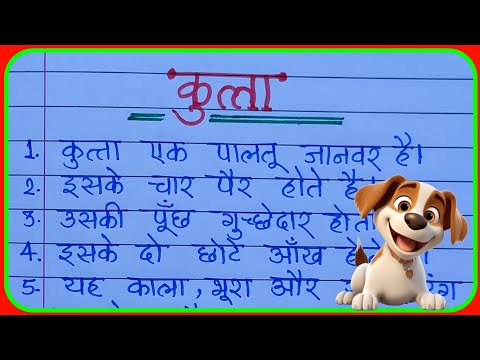 कुत्ता
1. कुत्ता एक पालतू जानवर है।
2. इसके चार पैर होते है।
3. उसकी पूँछ गुच्छेदार होता
4. इसके दो छोटे आँख
5. यह काला, भूरा और रंग